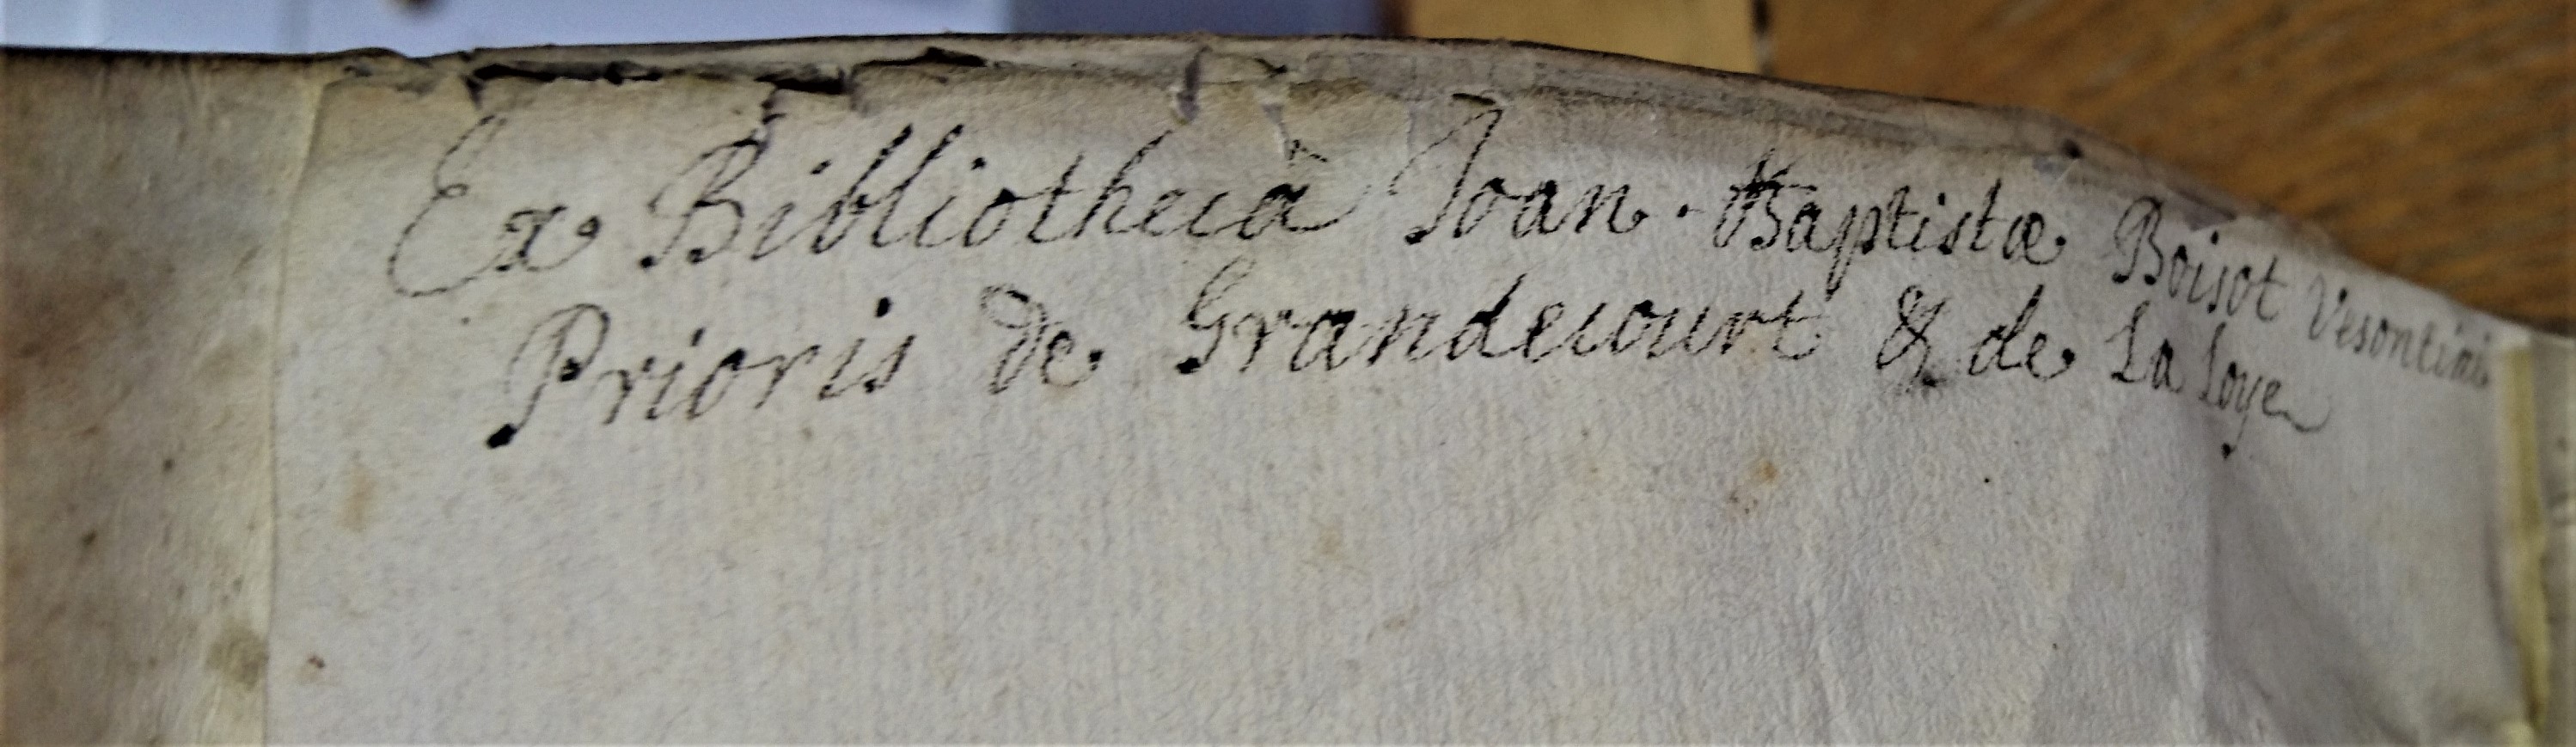 Ex Bibliothecâ Joan. Baptistæ Boisot Vesontini
Prioris de Grandecourt & de La Loye